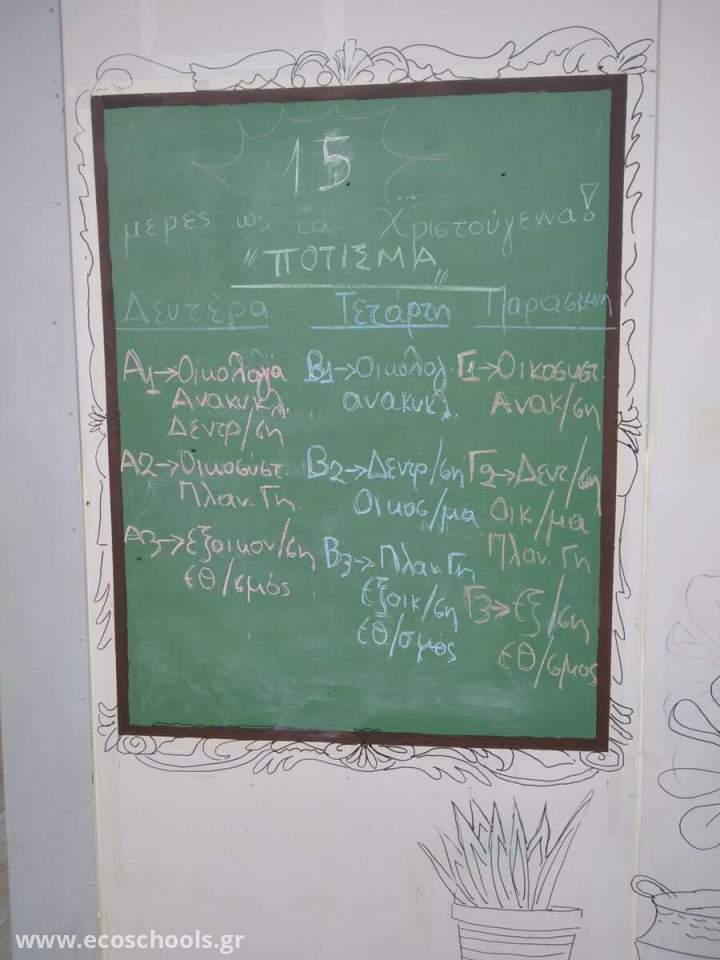 15
μέρες ως τα Χριστούγεννα!
"ΠΟΤΙΣΜΑ"
Δευτέρα
Α1→Οικολογία
Ανακυκλ.
Δεντρ/ση
Α2→Οικοσυστ.
Πλαν. Γη
Α3→εξοικον/ση
εθ/σμός
Τετάρτη
Β1→Οικολογ.
ανακυκλ.
Β2→Δεντρ/ση
Οικοσ/μα
Β3→Πλαν. Γη
εξοικ/ση
εθ/σμός
Παρασκευή
Γ1→Οικοσυστ.
Ανακ/ση
Γ2→Δεντ/ση
Οικ/μα
Πλαν. Γη
Γ3→εξ/ση
εθ/σμος
www.ecoschools.gr